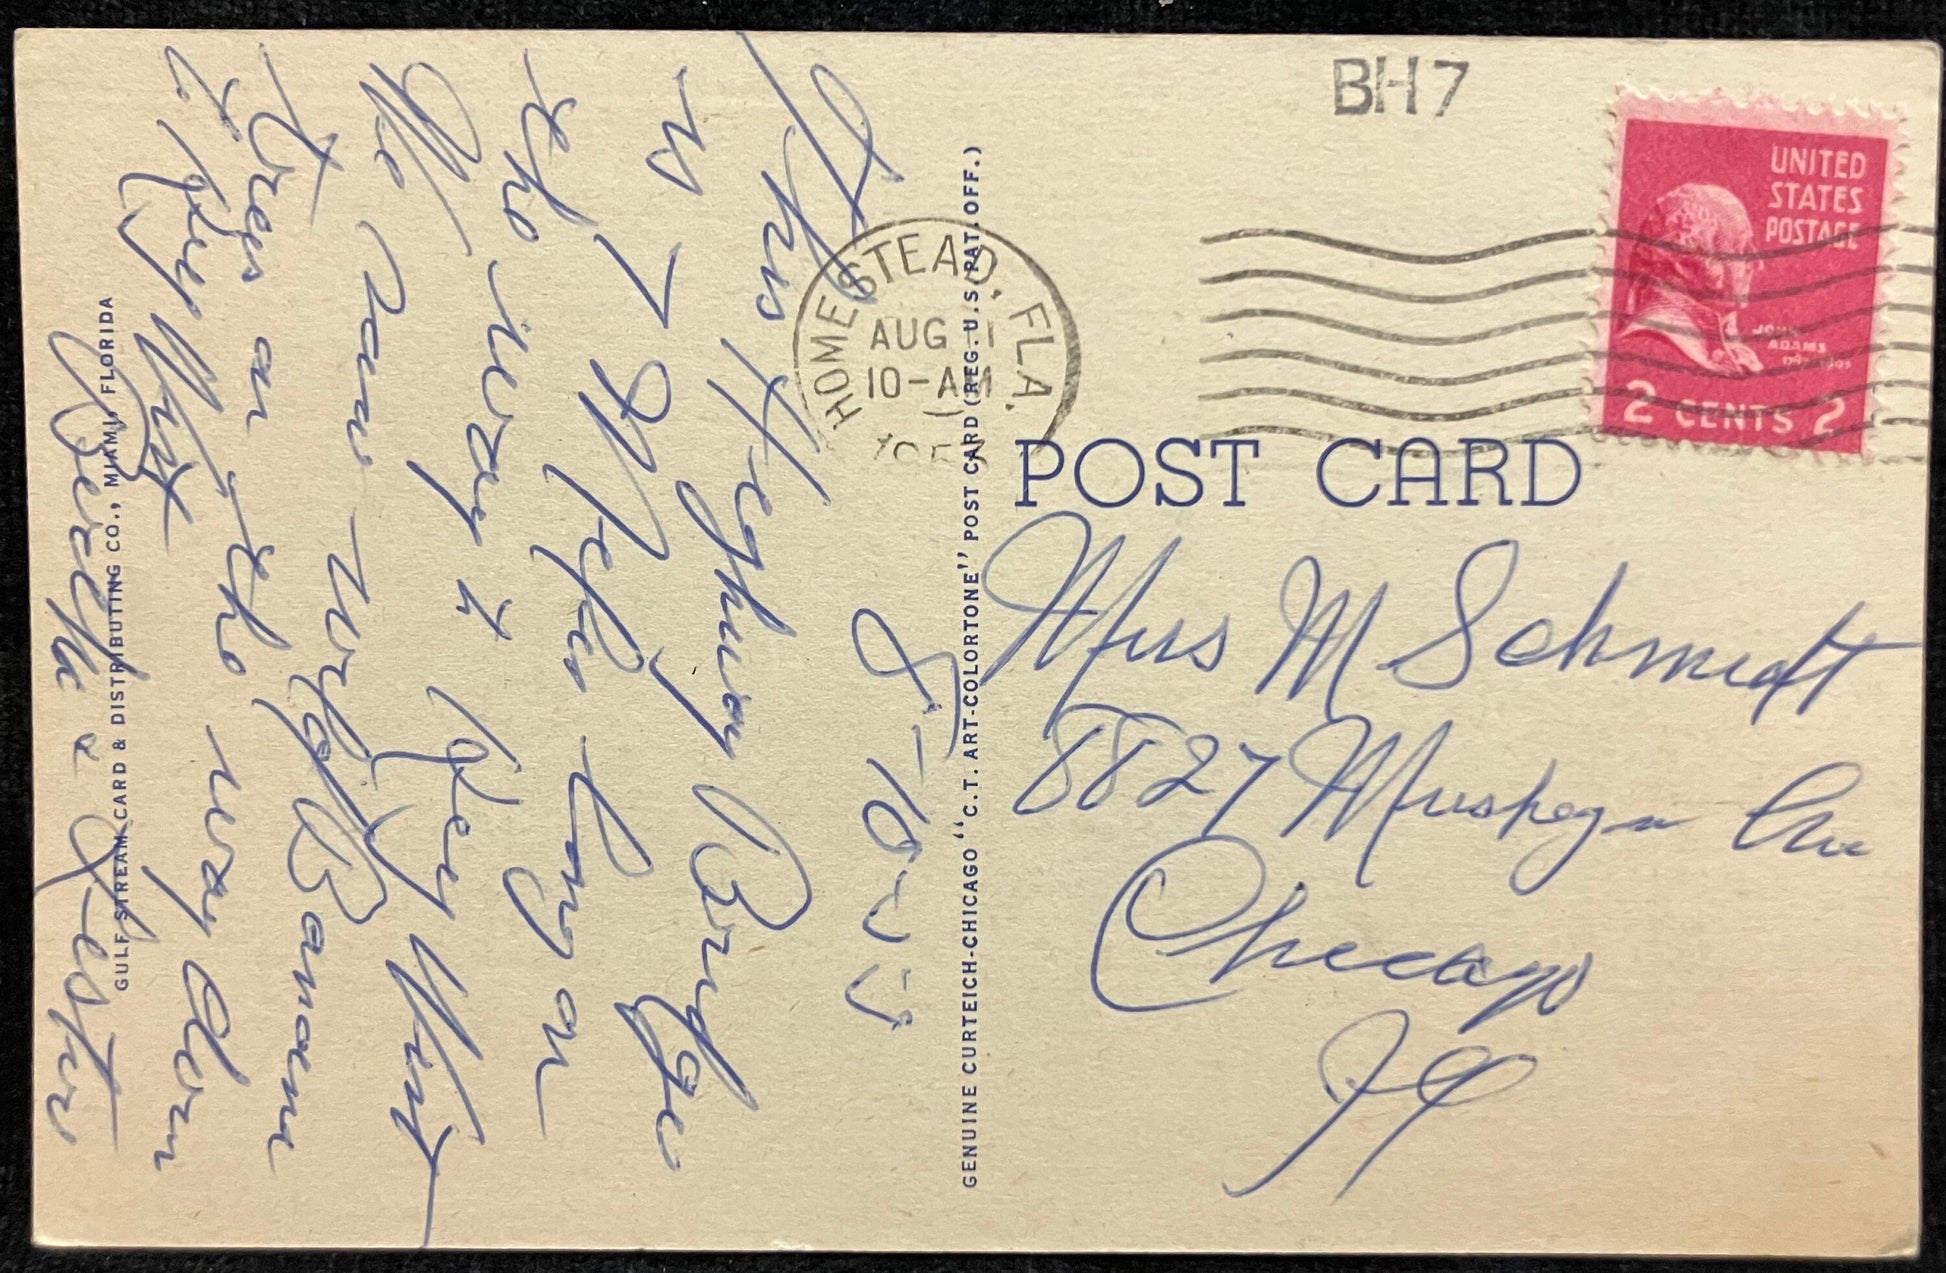 BH7
UNITED
STATES
POSTAGE
JOHN
ADAMS
2 CENTS 2
HOMESTEAD, FLA.
AUG 11
10-AM
POST CARD
8-10-55
This Highway Bridge
is 7 Miles long on
the way to Key West
We saw
trees on the way down
to Key West
& Lester
Miss M Schmidt
8827 Muskegon Ave
Chicago
Ill
GENUINE CURTEICH-CHICAGO "C.T. ART-COLORTONE" POST CARD (REG. U.S. PAT. OFF.)
GULF STREAM CARD & DISTRIBUTING CO., MIAMI, FLORIDA